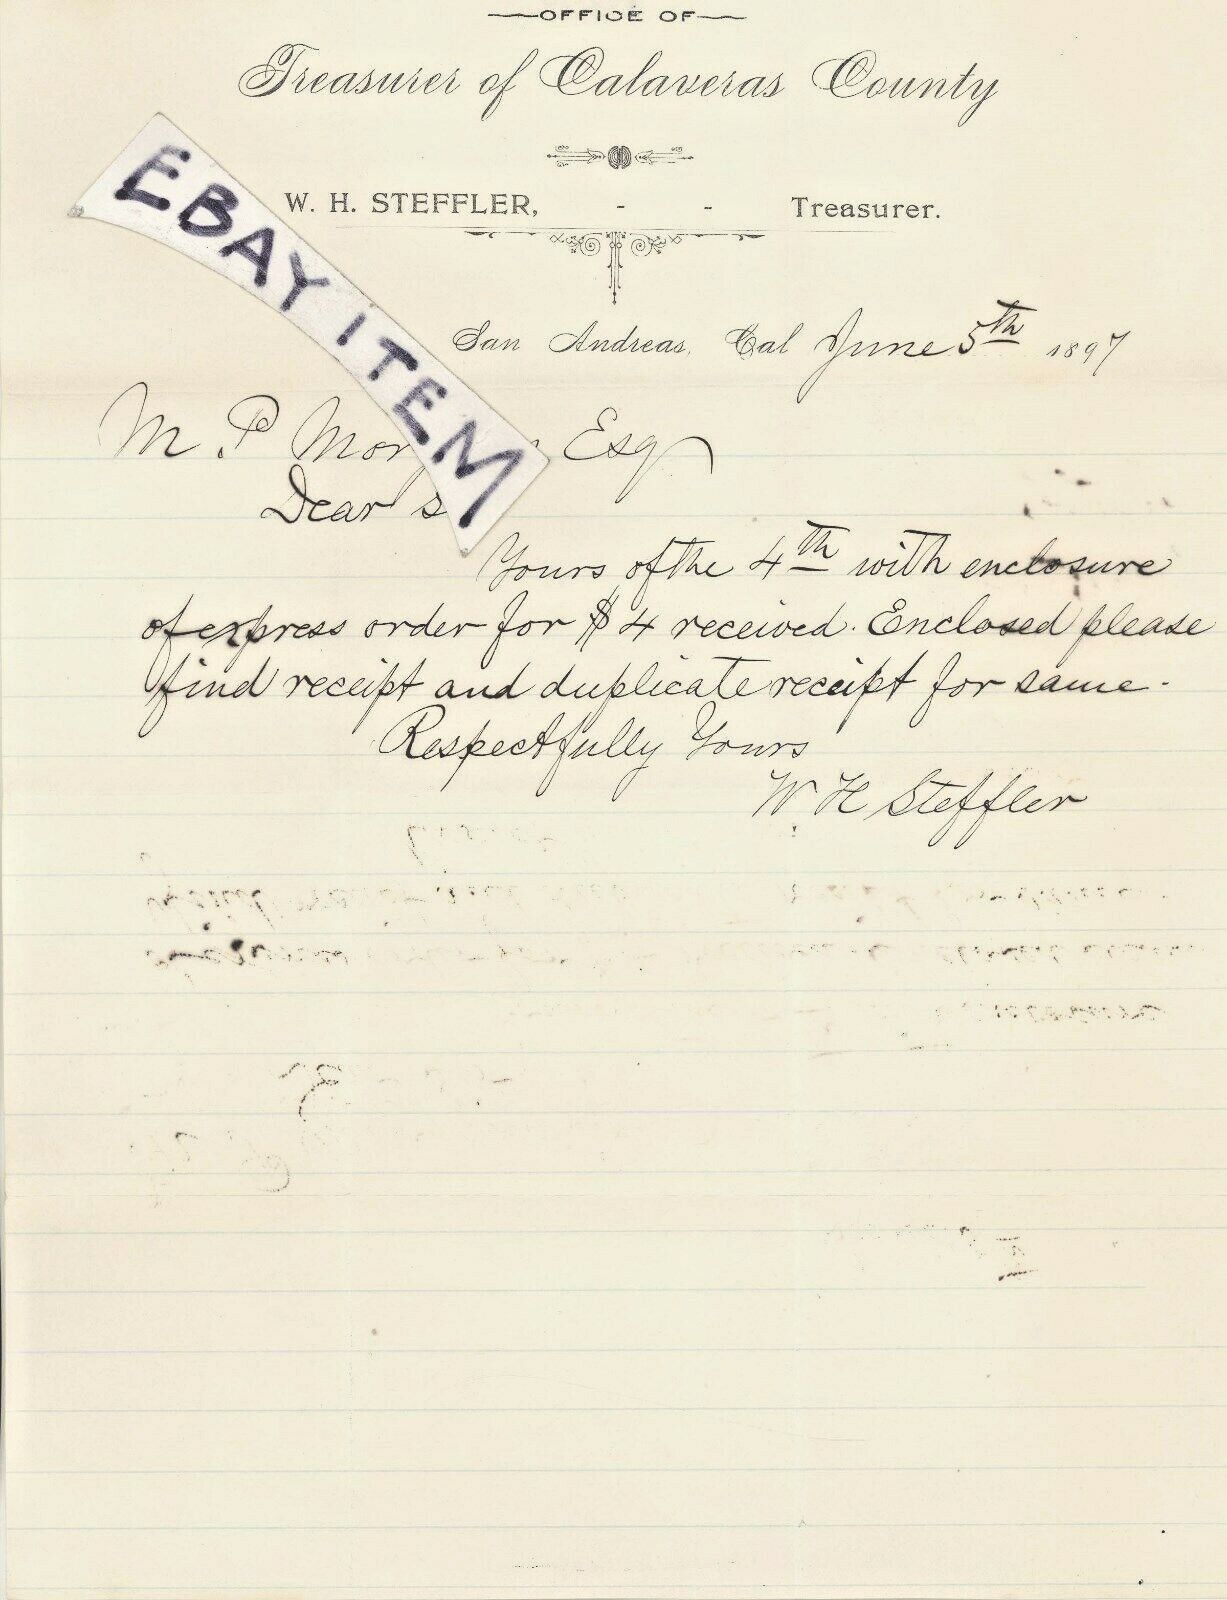 OFFICE OF
Treasurer of Calaveras County
W. H. STEFFLER, - - Treasurer.
EBAY ITEM
San Andreas, Cal June 5th 1897
M. P. Esq
Dear
Yours of the 4th with enclosure
of express order for $4 received. Enclosed please
find receipt and duplicate receipt for same.
Respectfully Yours
W H Steffler